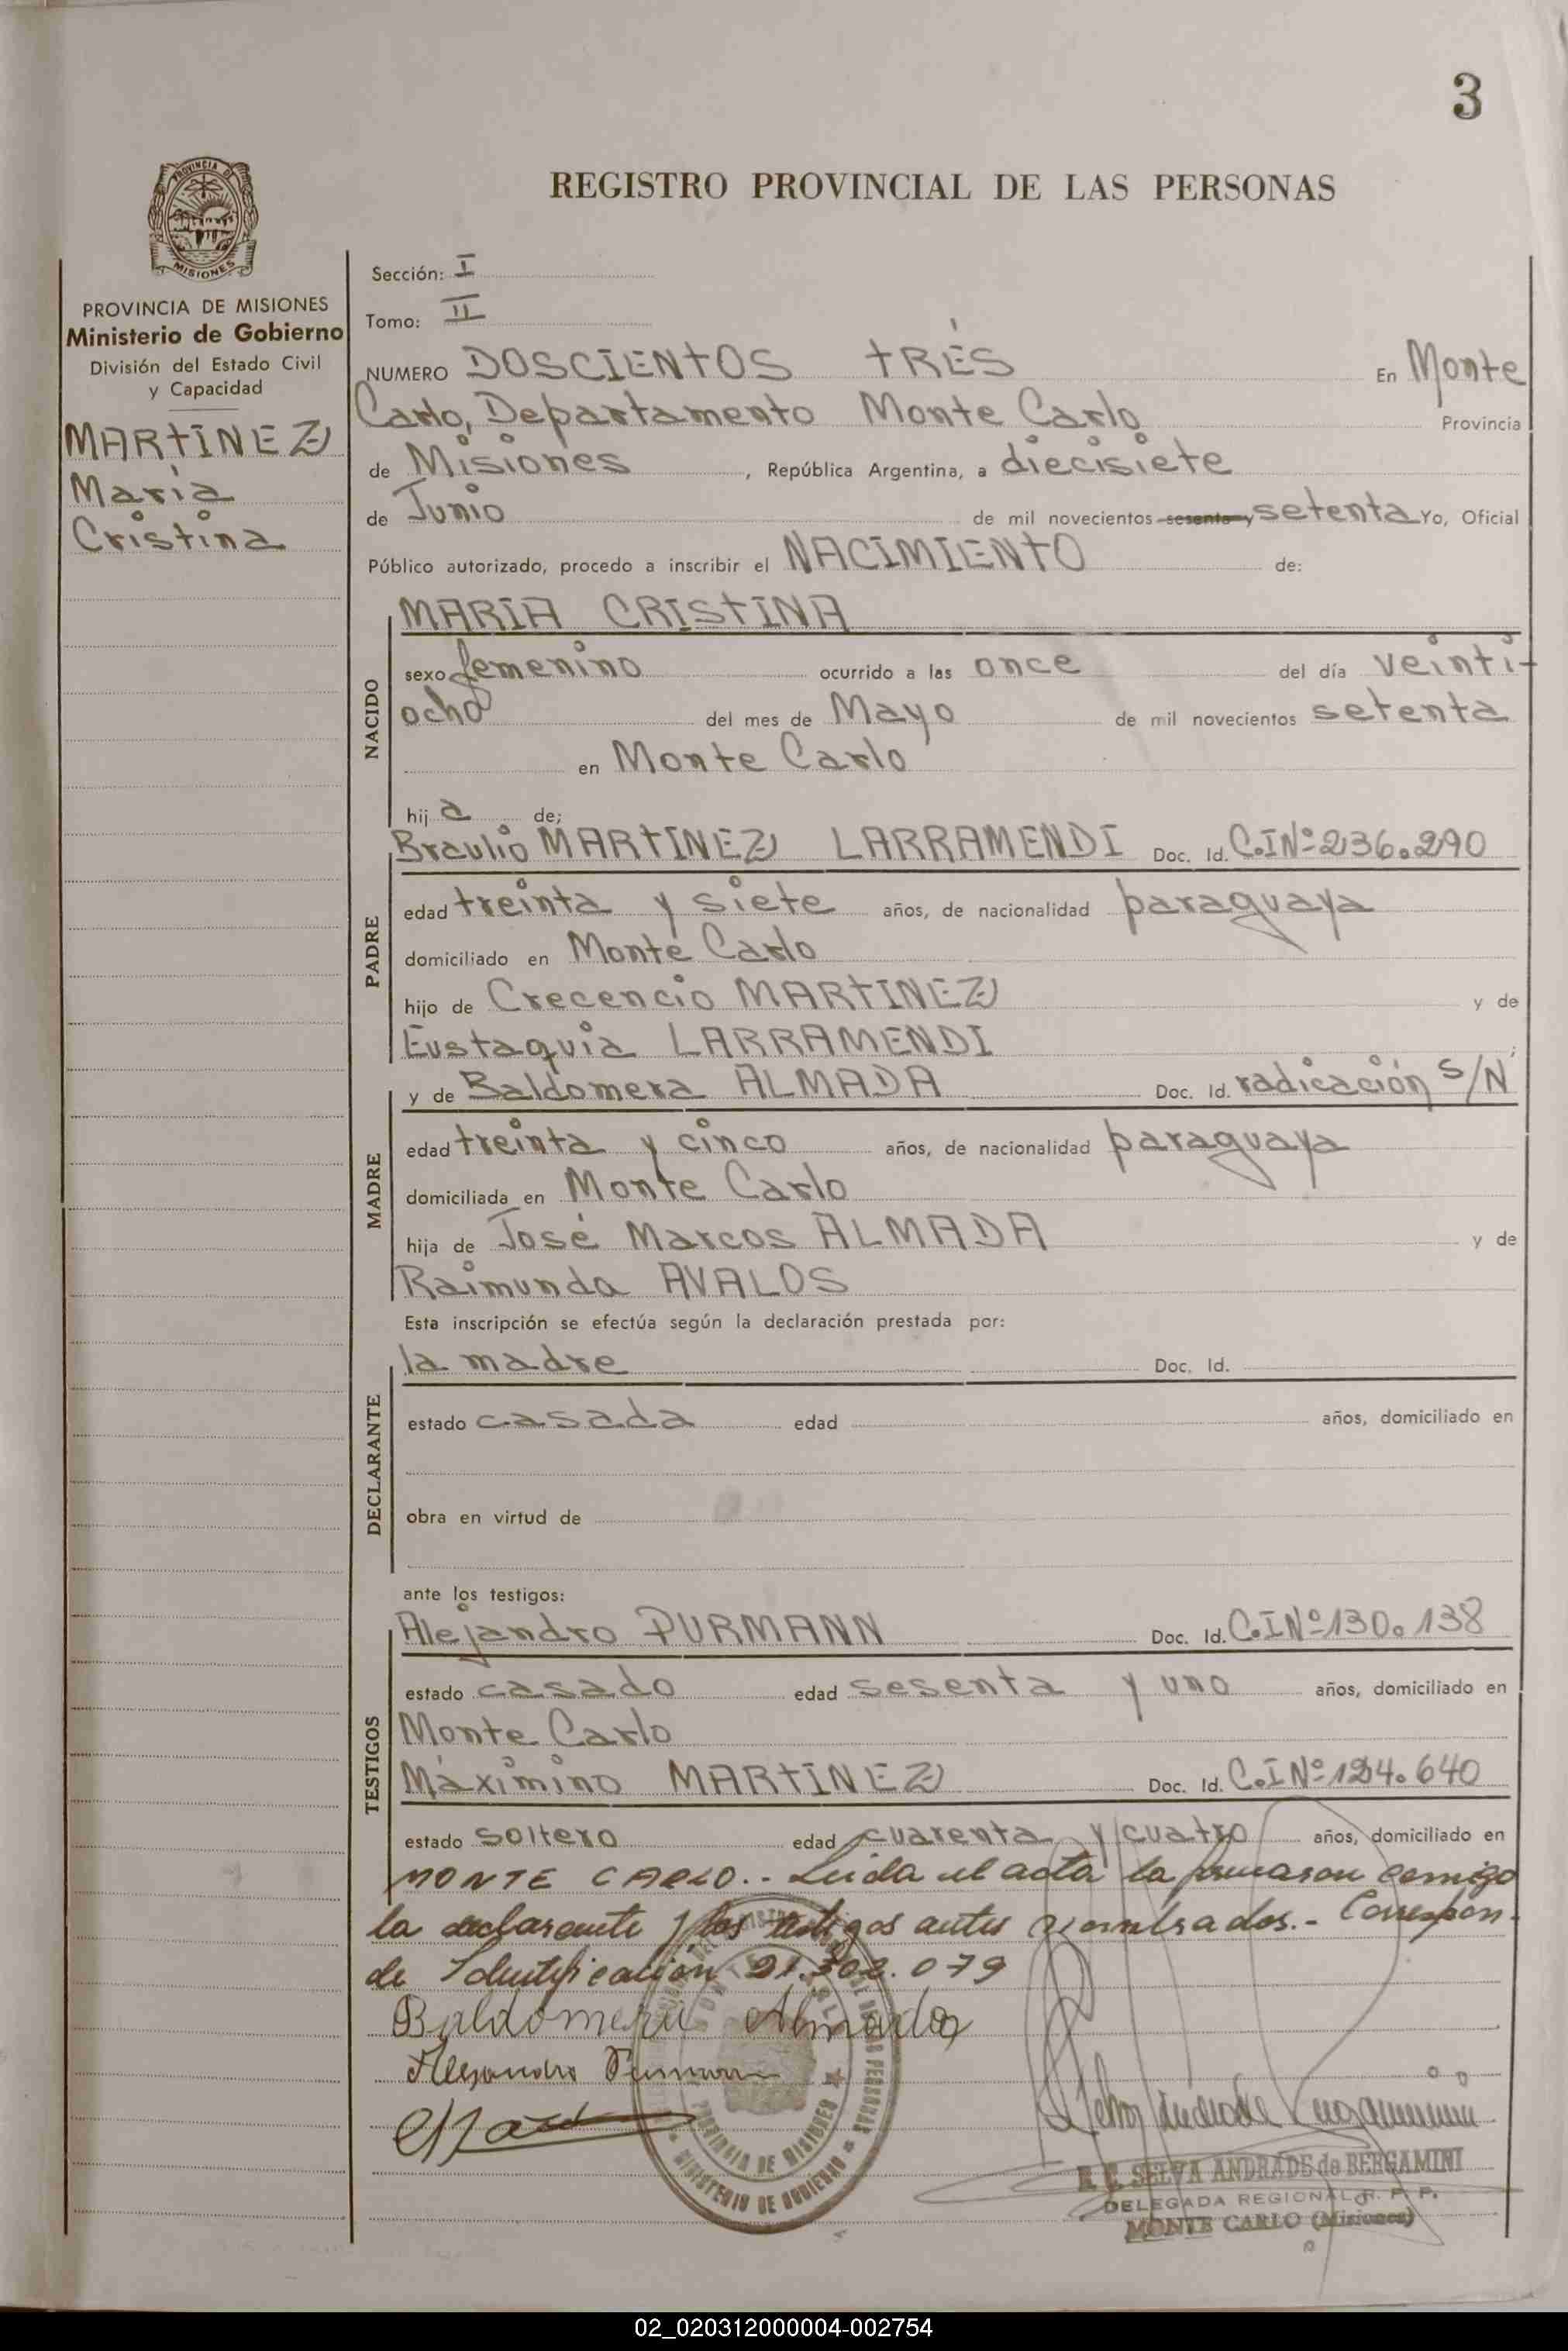 3
PROVINCIA DE
MISIONES
REGISTRO PROVINCIAL DE LAS PERSONAS
PROVINCIA DE MISIONES
Ministerio de Gobierno
División del Estado Civil
y Capacidad
MARTINEZ
María
Cristina
Sección: I
Tomo: II
NUMERO DOSCIENTOS TRÉS En Monte
Carlo, Departamento Monte Carlo Provincia
de Misiones, República Argentina, a diecisiete
de Junio de mil novecientos sesenta y setenta Yo, Oficial
Público autorizado, procedo a inscribir el NACIMIENTO de:
NACIDO
MARIA CRISTINA
sexo femenino ocurrido a las once del día veinti-
ocho del mes de Mayo de mil novecientos setenta
en Monte Carlo
hija de;
PADRE
Braulio MARTINEZ LARRAMENDI Doc. Id. C.I Nº 236.290
edad treinta y siete años, de nacionalidad paraguaya
domiciliado en Monte Carlo
hijo de Crecencio MARTINEZ y de
Eustaquia LARRAMENDI
MADRE
y de Baldomera ALMADA Doc. Id. radicación S/N
edad treinta y cinco años, de nacionalidad paraguaya
domiciliada en Monte Carlo
hija de José Marcos ALMADA y de
Raimunda AVALOS
Esta inscripción se efectúa según la declaración prestada por:
DECLARANTE
la madre Doc. Id.
estado casada edad años, domiciliado en
obra en virtud de
ante los testigos:
TESTIGOS
Alejandro PURMANN Doc. Id. C.I Nº 130.138
estado casado edad sesenta y uno años, domiciliado en
Monte Carlo
Máximino MARTINEZ Doc. Id. C.I Nº 124.640
estado soltero edad cuarenta y cuatro años, domiciliado en
MONTE CARLO.- Leida el acta la firmaron comigo
la declarante y los testigos antes nombrados.- Correspon-
de Identificación 21.302.079
Baldomera Almada
Alejandro Purmann
PROVINCIA DE MISIONES
MINISTERIO DE GOBIERNO
SELVA ANDRADE de BERGAMINI
DELEGADA REGIONAL R. P. P.
MONTE CARLO (Misiones)
02_020312000004-002754